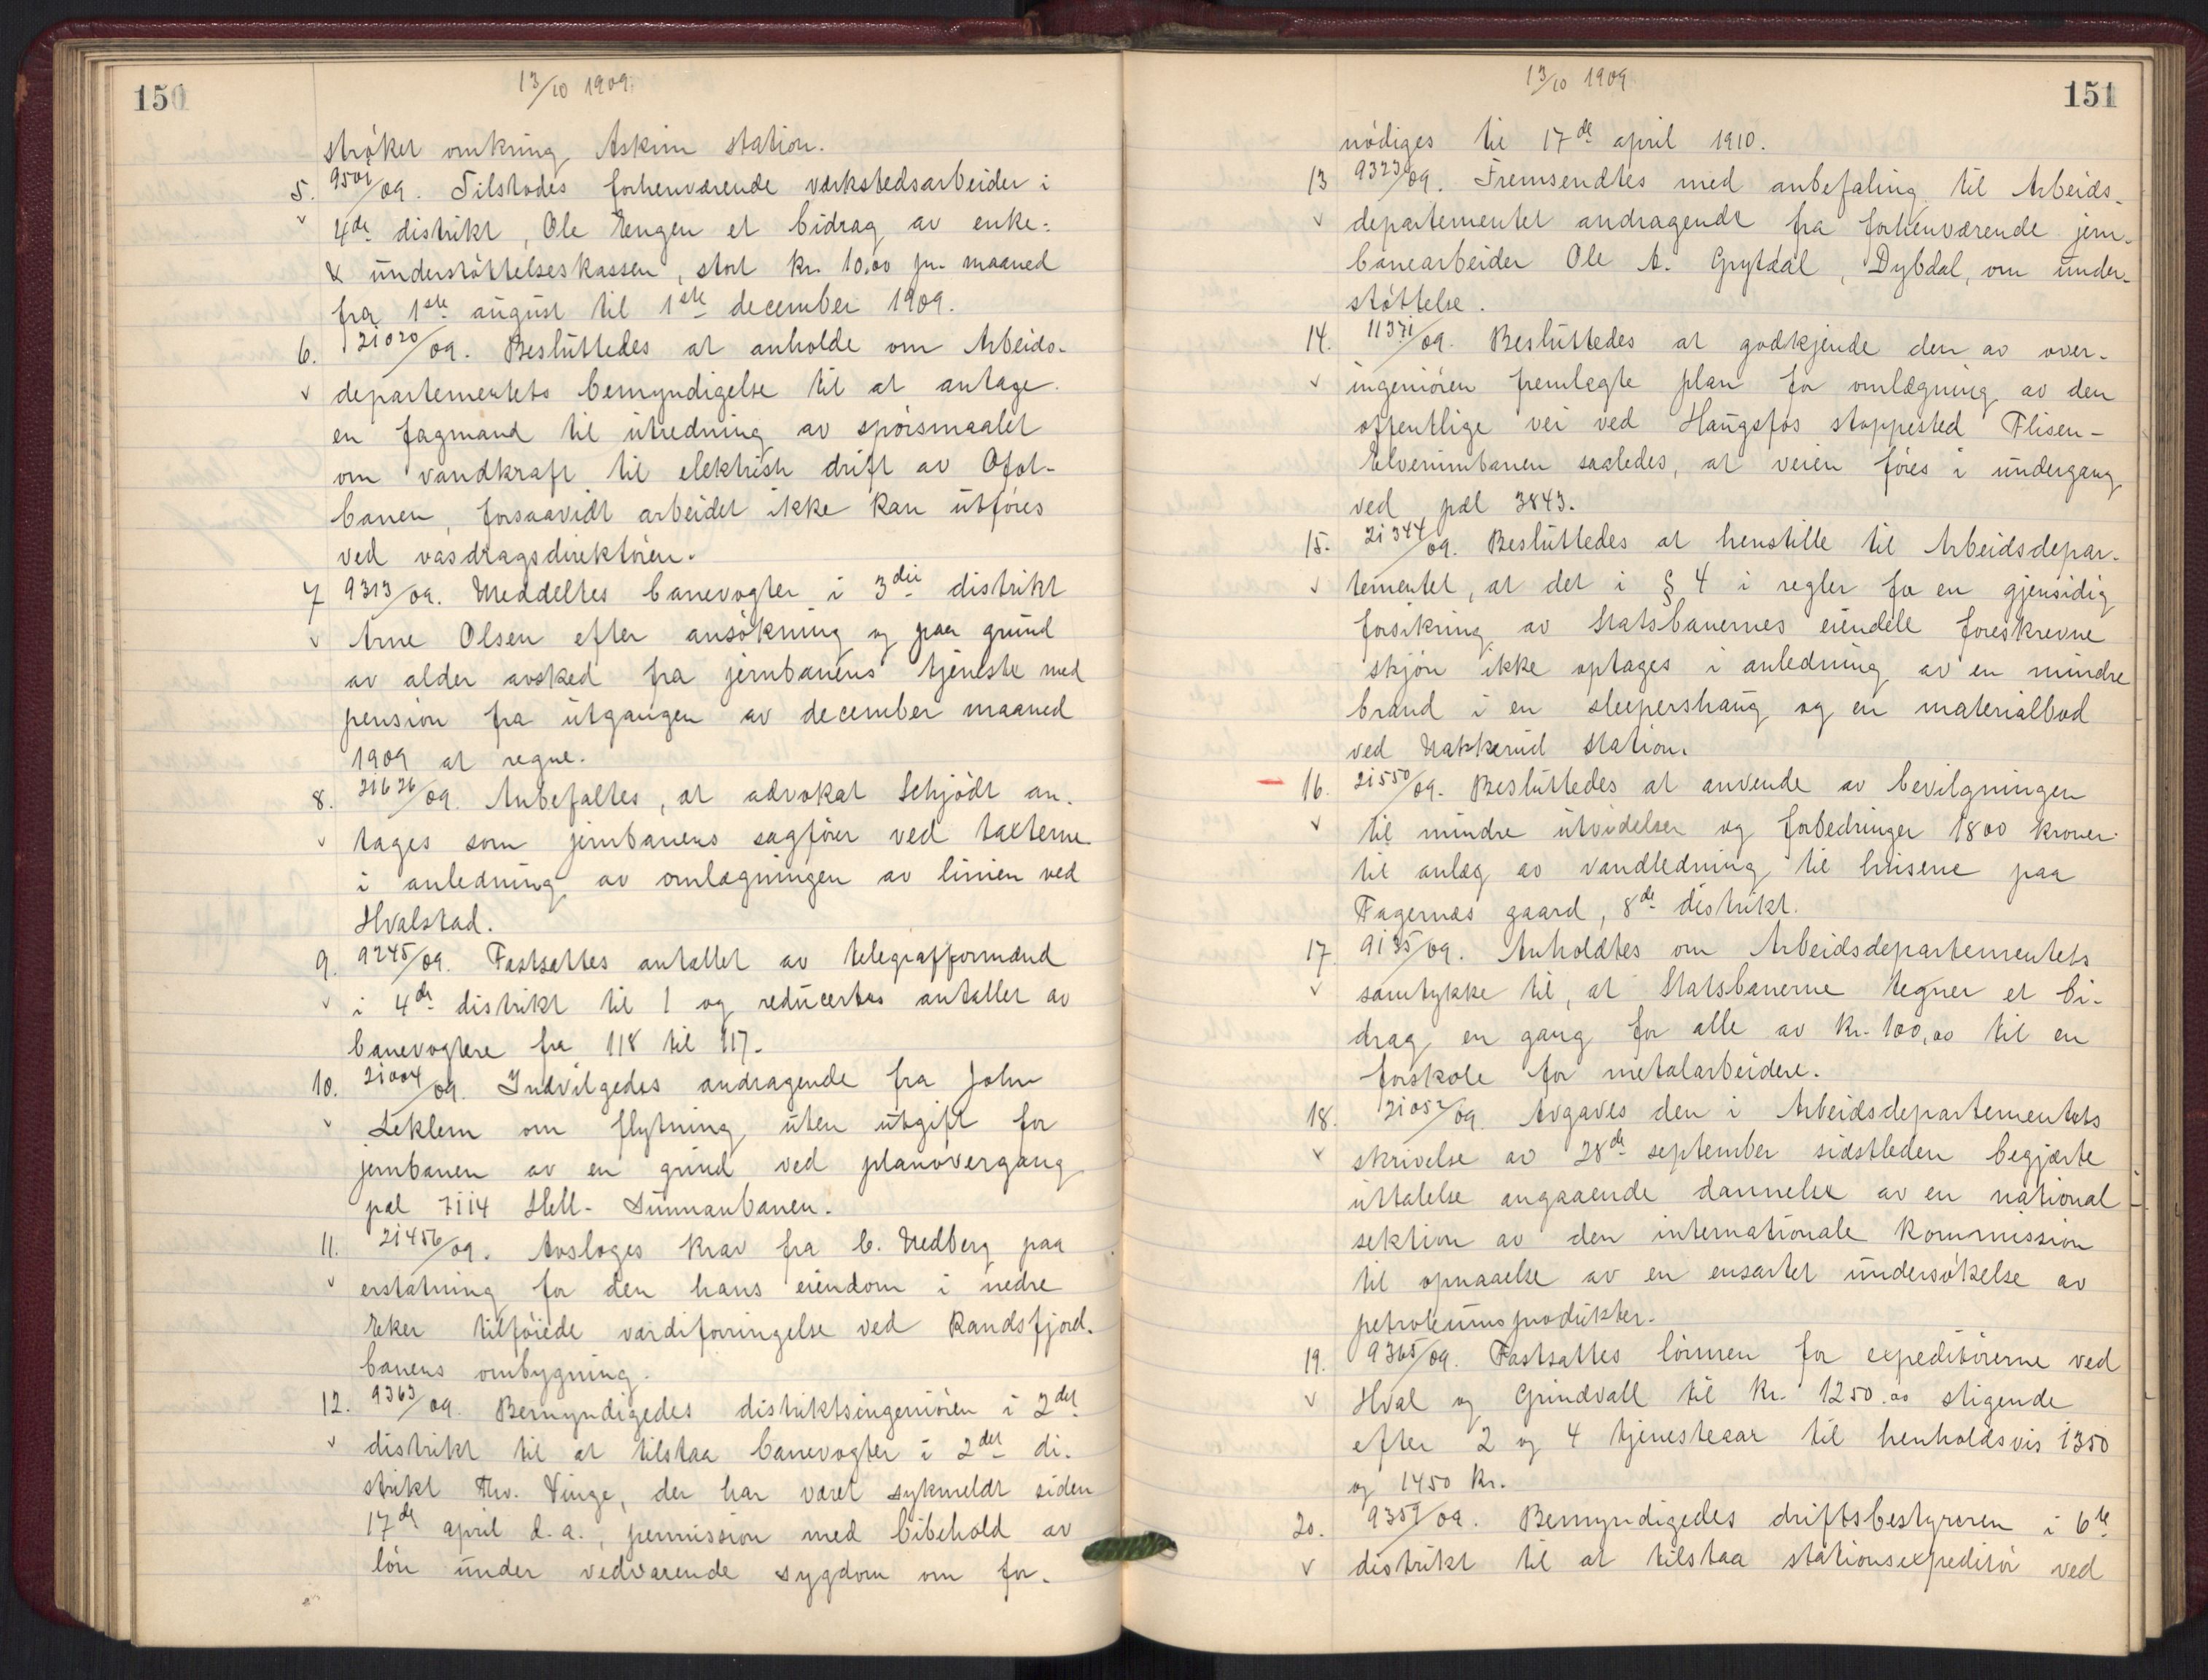 150
13/10 1909.
strøket omkring Askim station.
5. 9501/09. Tilstodes forhenværende værkstedsarbeider i
4de distrikt, Ole Engen et bidrag av enke-
& understøttelseskassen, stort kr. 10,00 pr. maaned
fra 1ste august til 1ste december 1909.
6. 21020/09. Besluttedes at anholde om Arbeids-
departementets bemyndigelse til at antage
en fagmand til utredning av spørsmaalet
om vandkraft til elektrisk drift av Ofot-
banen, forsaavidt arbeidet ikke kan utføres
ved vasdragsdirektøren.
7 9313/09. Meddeltes banevogter i 3die distrikt
Arne Olsen efter ansøkning og paa grund
av alder avsked fra jernbanens tjeneste med
pension fra utgangen av december maaned
1909 at regne.
8. 21626/09. Anbefaltes, at advokat Schjødt an-
tages som jernbanens sagfører ved taxterne
i anledning av omlægningen av linien ved
Hvalstad.
9. 9245/09. Fastsattes antallet av telegrafformænd
i 4de distrikt til 1 og reducertes antallet av
banevogtere fra 118 til 117.
10. 21004/09. Indvilgedes andragende fra John
Leklem om flytning uten utgift for
jernbanen av en grind ved planovergang
pæl 7114 Hell-Sunnanbanen.
11. 21456/09. Avsloges krav fra C. Hedberg paa
erstatning for den hans eiendom i nedre
Eker tilføiede værdiforringelse ved Randsfjord-
banens ombygning.
12. 9363/09. Bemyndigedes distriktsingeniøren i 2det
distrikt til at tilstaa banevogter i 2det di-
strikt Thv. Vinge, der har været sykmeldt siden
17de april d.a., permission med bibehold av
løn under vedvarende sygdom om for-
151
13/10 1909
nødiges til 17de april 1910.
13 9323/09. Fremsendtes med anbefaling til Arbeids-
departementet andragende fra forhenværende jern-
banearbeider Ole A. Grytdal, Dybdal, om under-
støttelse.
14. 11371/09. Besluttedes at godkjende den av over-
ingeniøren fremlagte plan for omlægning av den
offentlige vei ved Haugsfos stoppested Flisen-
Elverumbanen saaledes, at veien føres i undergang
ved pæl 3843.
15. 21344/09. Besluttedes at henstille til Arbeidsdepar-
tementet, at det i § 4 i regler for en gjensidig
forsikring av Statsbanernes eiendele foreskrevne
skjøn ikke optages i anledning av en mindre
brand i en sleepershaug og en materialbod
ved Nakkerud station.
16. 21550/09. Besluttedes at anvende av bevilgningen
til mindre utvidelser og forbedringer 1800 kroner
til anlæg av vandledning til husene paa
Fagernes gaard, 8de distrikt.
17. 9135/09. Anholdtes om Arbeidsdepartementets
samtykke til, at Statsbanerne tegner et bi-
drag en gang for alle av kr. 100,00 til en
forskole for metalarbeidere.
18. 21052/09. Avgaves den i Arbeidsdepartementets
skrivelse av 28de september sidstleden begjærte
uttalelse angaaende dannelse av en national
sektion av den internationale kommission
til opnaaelse av en ensartet undersøkelse av
petroleumsprodukter.
19. 9365/09. Fastsattes lønnen for expeditørerne ved
Hval og Grindvall til kr. 1250.00 stigende
efter 2 og 4 tjenesteaar til henholdsvis 1350
og 1450 kr.
20. 9359/09. Bemyndigedes driftsbestyreren i 6te
distrikt til at tilstaa stationsexpeditør ved